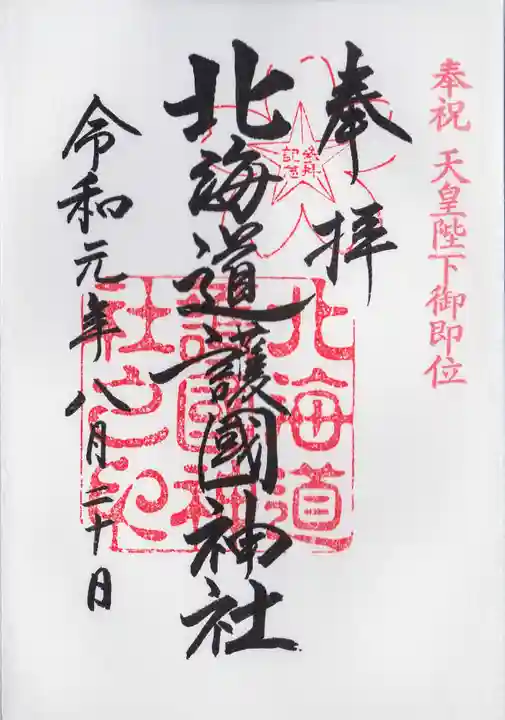 奉祝 天皇陛下御即位
奉拝
参拝
記念
北海道護國神社
北海道
護国神
社之印
令和元年八月二十日